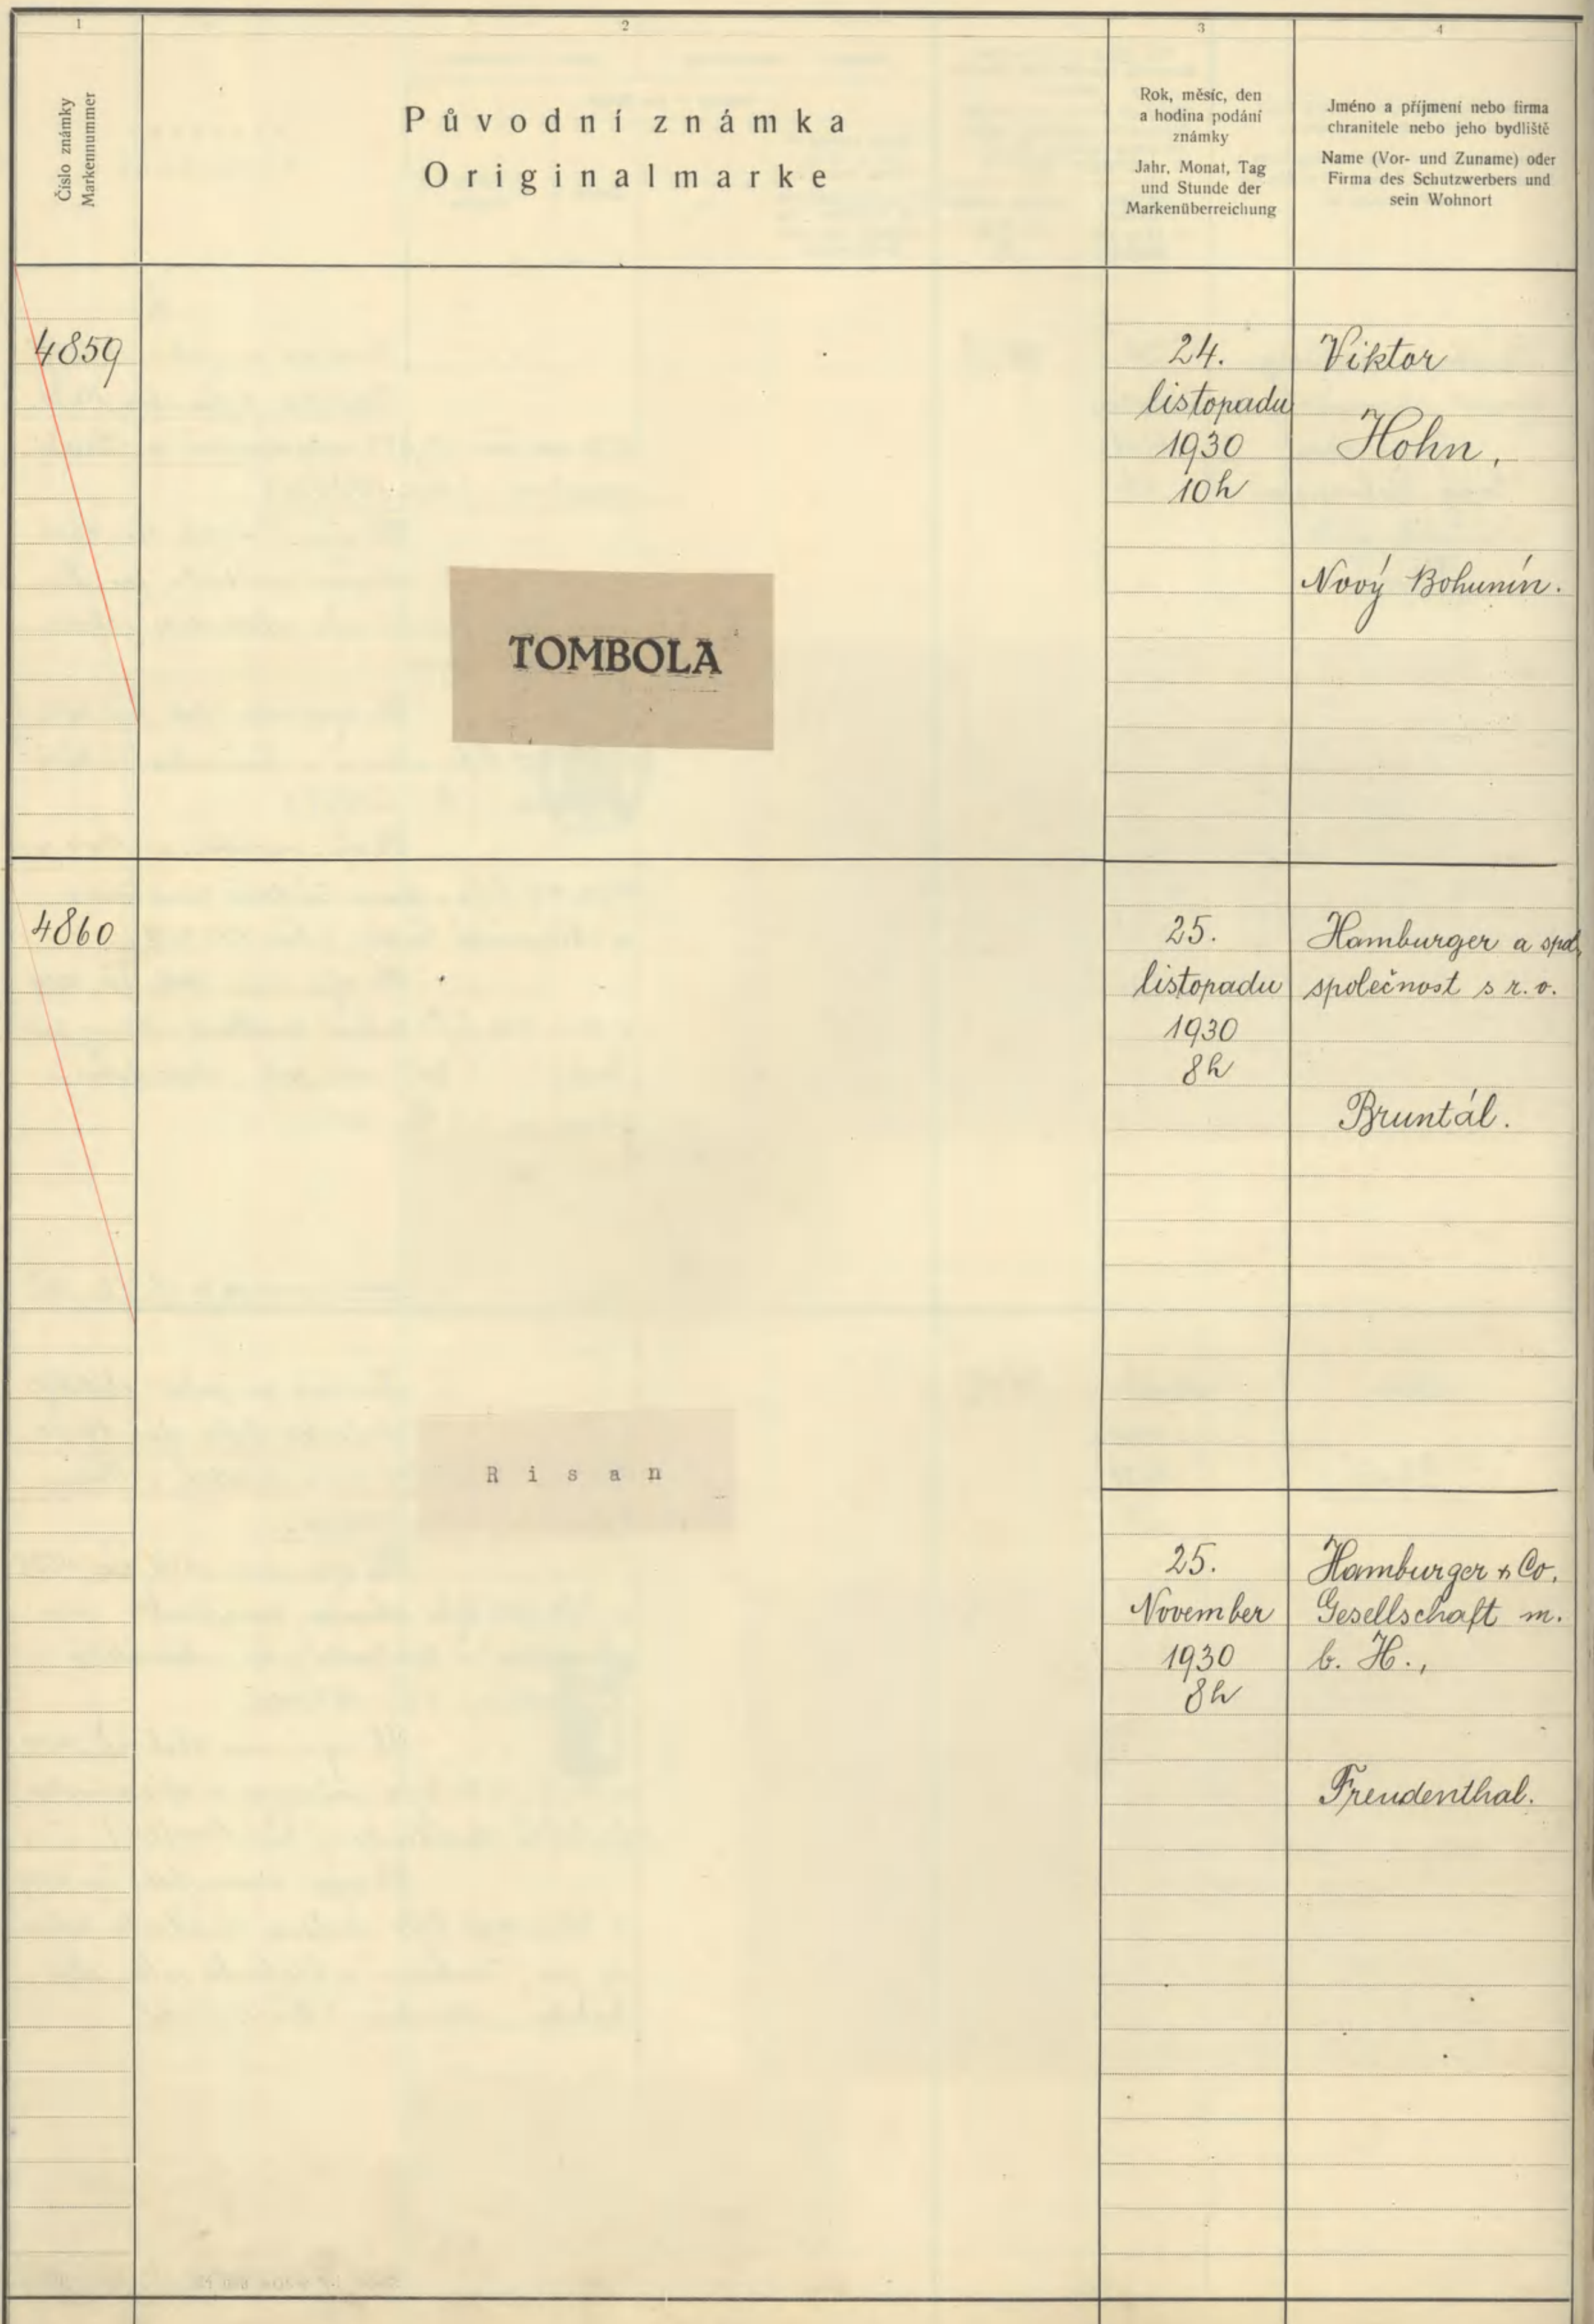 1
2
3
4
Číslo známky
Markennummer
Původní známka
Originalmarke
Rok, měsíc, den
a hodina podání
známky
Jahr, Monat, Tag
und Stunde der
Markenüberreichung
Jméno a příjmení nebo firma
chranitele nebo jeho bydliště
Name (Vor- und Zuname) oder
Firma des Schutzwerbers und
sein Wohnort
4859
TOMBOLA
24.
listopadu
1930
10h
Viktor
Hohn,
Nový Bohumín.
4860
Risan
25.
listopadu
1930
8h
Hamburger a spol,
společnost s r. o.
Bruntál.
25.
November
1930
8h
Hamburger & Co.
Gesellschaft m.
b. H.,
Freudenthal.